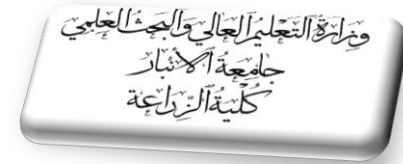 وَزارَةُ التَّعْليمِ العالي وَالبَحثُ العِلْمِي
جامِعَةُ الأَنْبار
كُلِّيَةُ الزِّراعَة